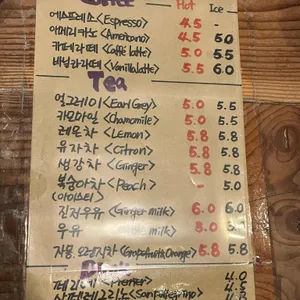 Hot Ice
에스프레소 <Espresso> 4.5 -
아메리카노 <Americano> 4.5 5.0
카페라떼 <Caffé latte> 5.0 5.5
바닐라라떼 <Vanilla latte> 5.5 6.0
Tea
얼그레이 <Earl Grey> 5.0 5.5
카모마일 <Chamomile> 5.0 5.5
레몬차 <Lemon> 5.8 5.8
유자차 <Citron> 5.8 5.8
생강차 <Ginger> 5.8 5.8
복숭아차 <Peach> - 5.0
(아이스티)
진저우유 <Ginger milk> 6.0 6.0
우유 milk> 6.0
자몽, 오렌지차 <Grapefruit, Orange> 5.8 5.8
페리에 <Perrier> 4.0
산펠레그리노 <Sanpellegrino>